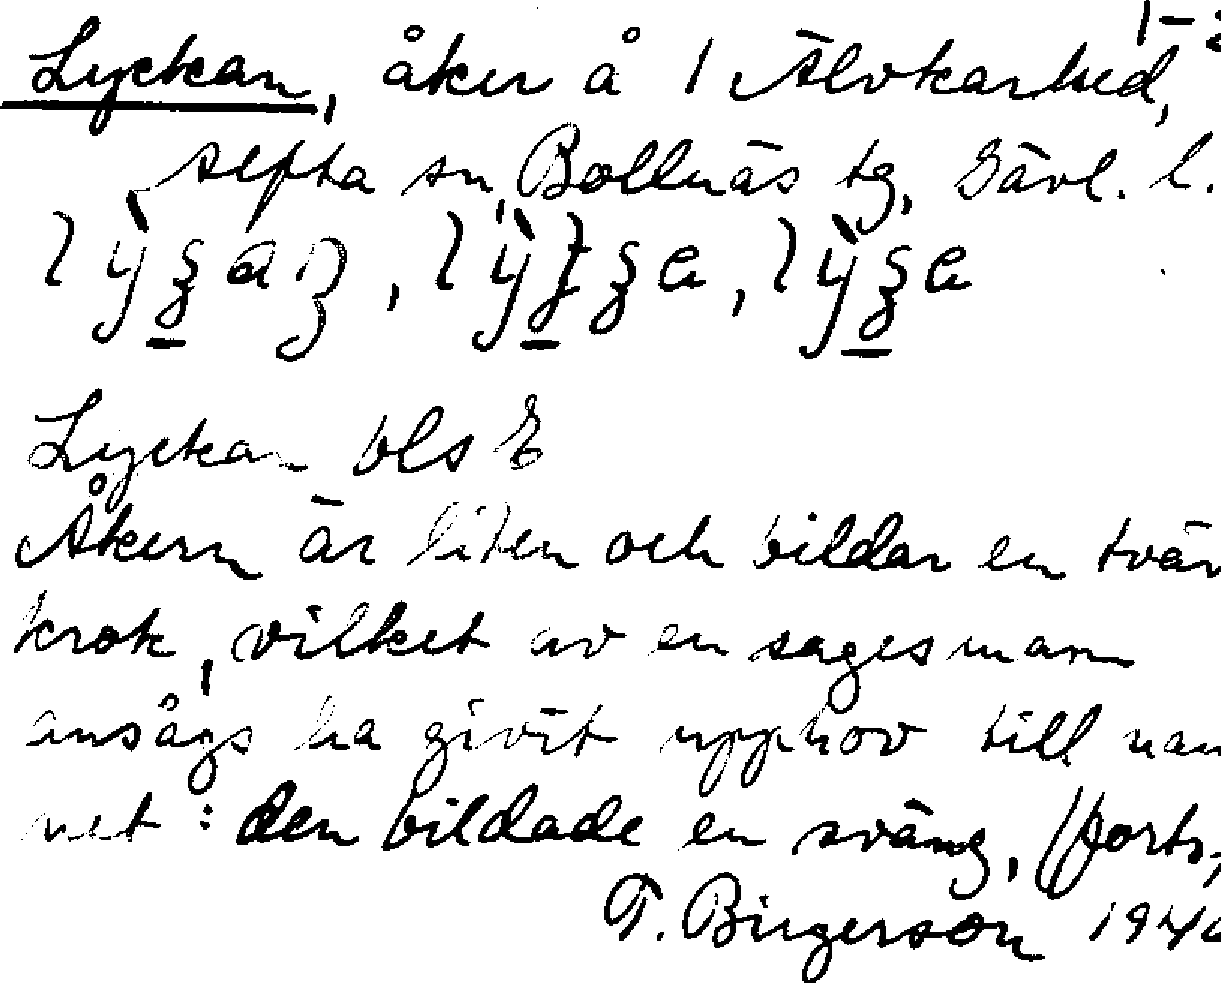 1-2
Lyckan, åker å 1 Älvkarhed,
Alfta sn, Bollnäs tg, Gävl. l.
Lyckan bls E
Åkern är liten och bildar en tvär
krok, vilket av en sagesman
ansågs ha givit upphov till nam
net: den bildade en sväng, (forts,
T. Birgerson 194